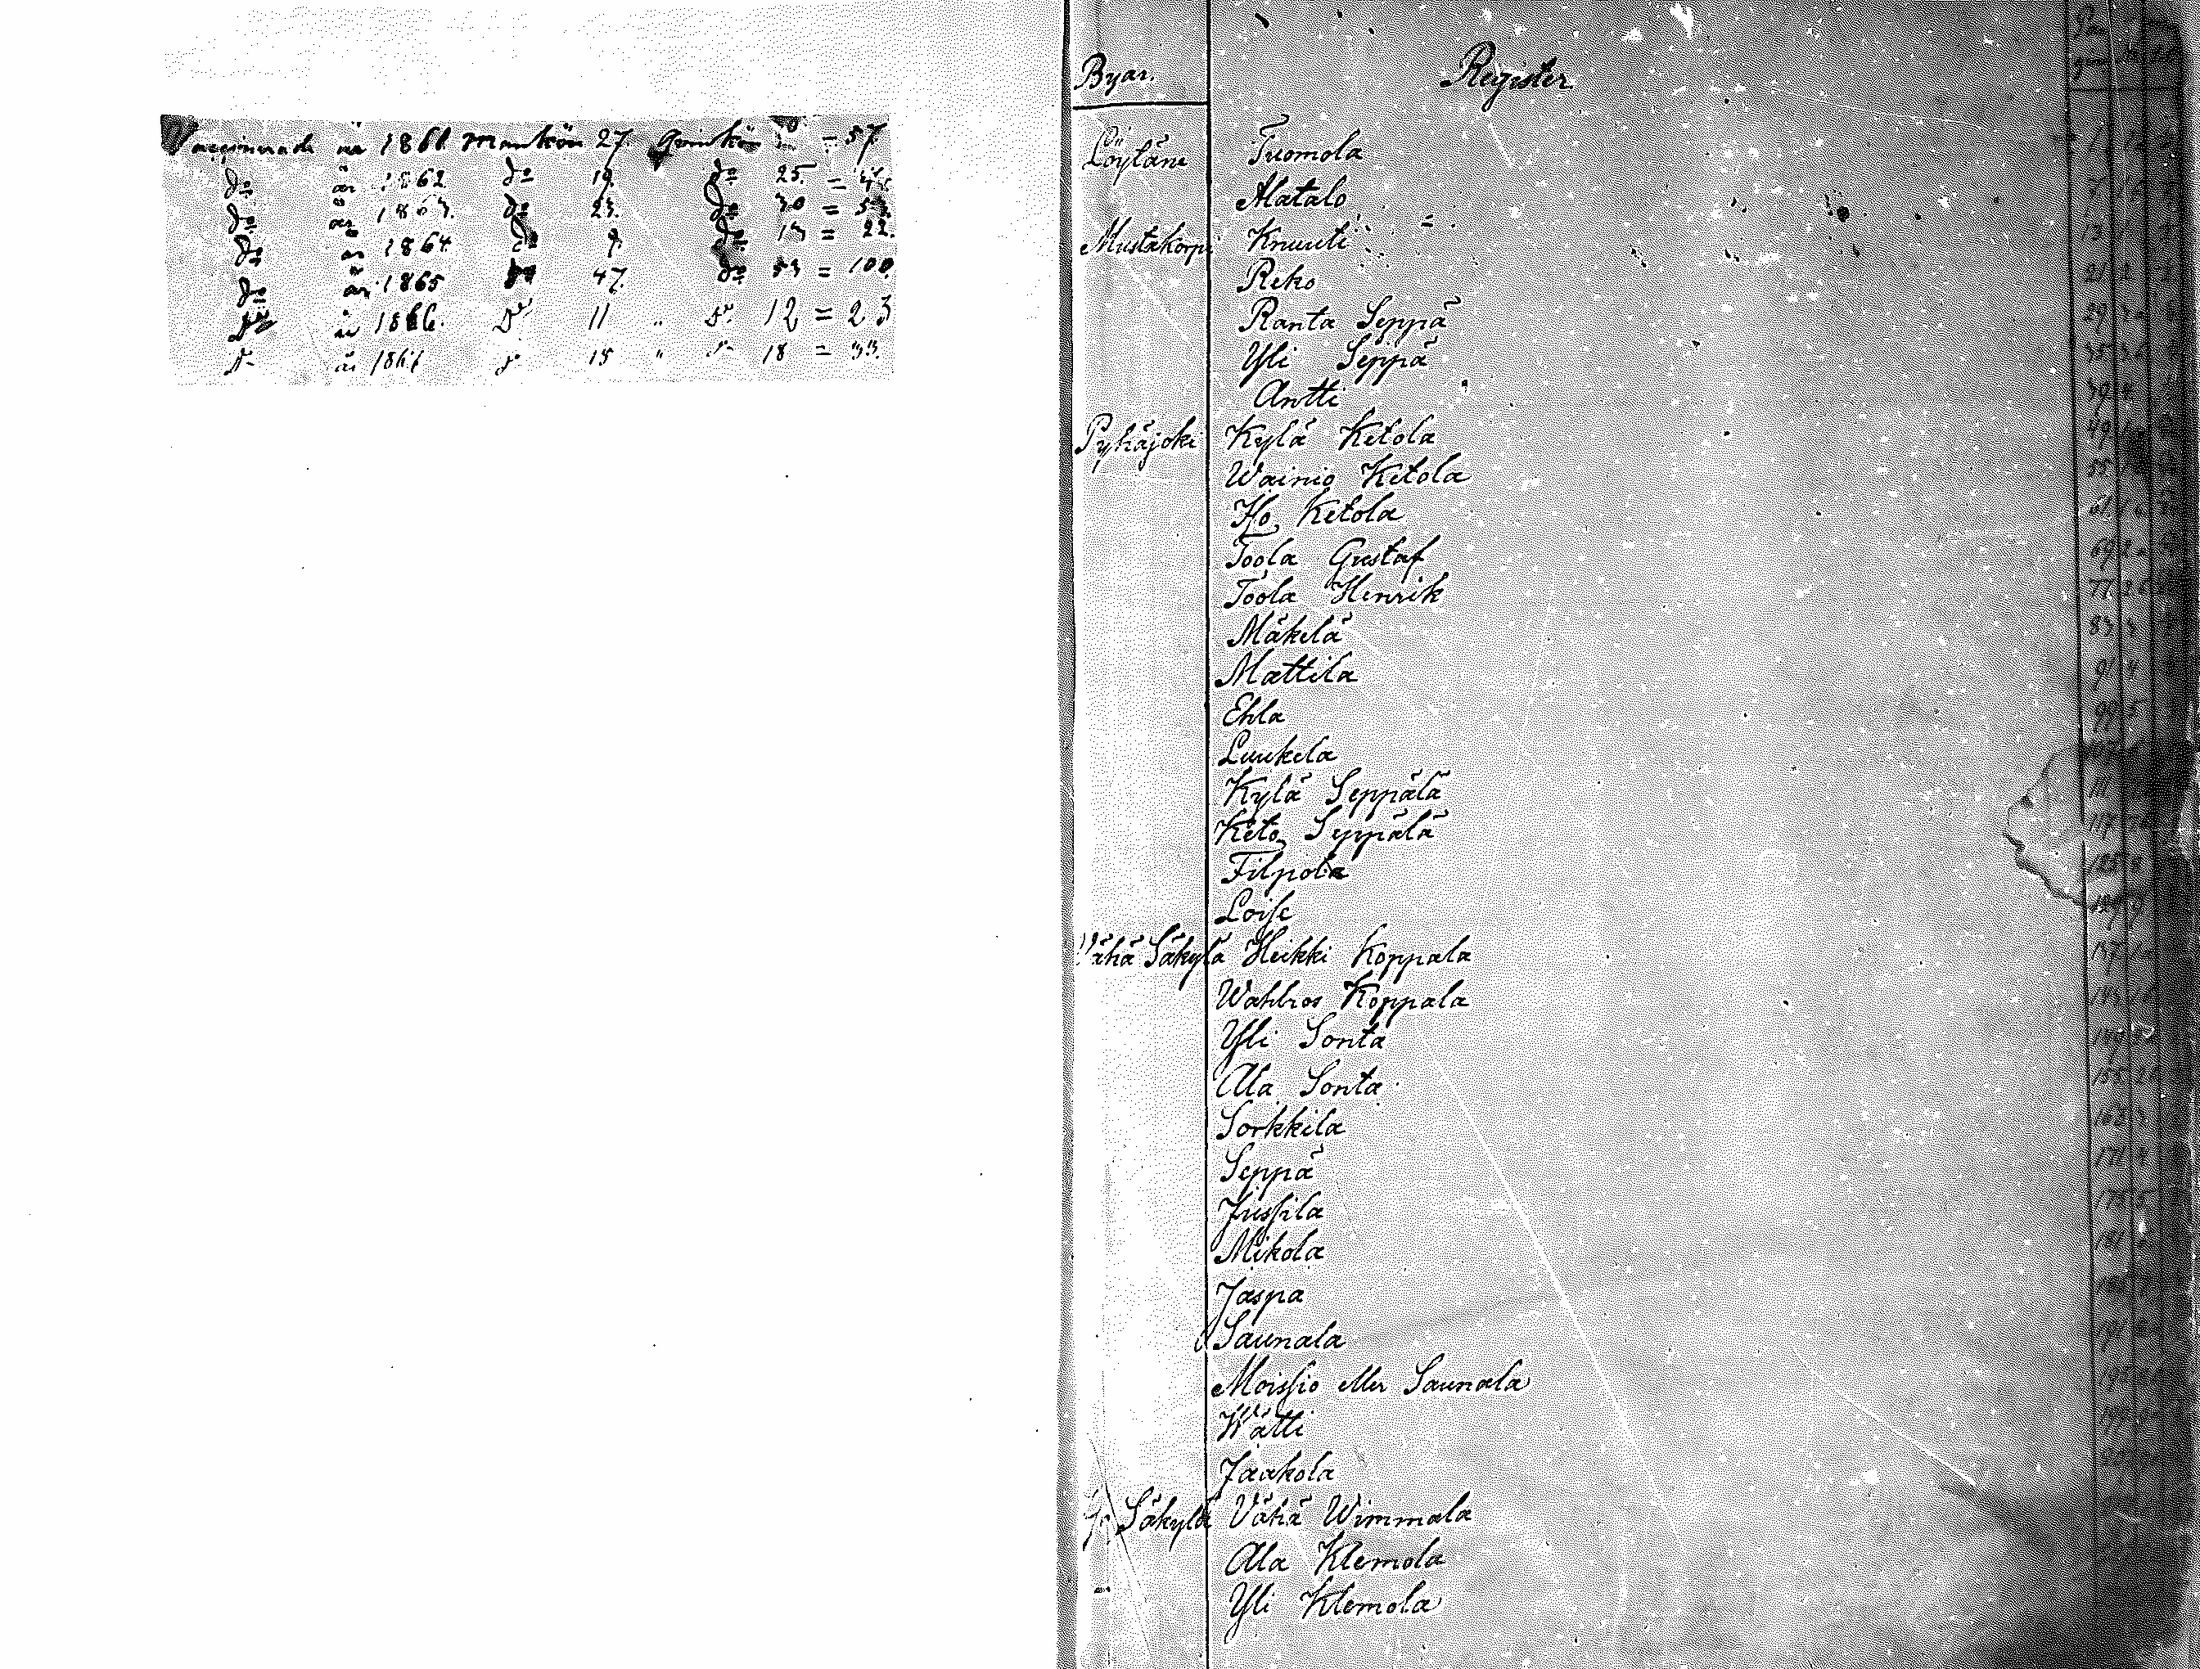 Vaccinerade år 1861. Mankön 27. Qvinkön 30 = 57.
do år 1862. do 19. do 25. =
do år 1863. do 23. do 30 = 53.
do år 1864. do 9. do 13 = 22.
do år 1865 do 47. do 53 = 100.
Do år 1866. Do 11 " Do 12 = 23
Do år do 15 " do 18 = 33.
Byar. Register
Löytäne Tuomola
Alatalo
Mustakorpi Knuuti
Reko
Ranta Seppä
Yli Seppä
Antti 39 4
Pyhäjoki Kylä Ketola 49
Wainio Ketola
Iso Ketola
Toola Gustaf 69
Toola Henrik 77
Mäkelä 83
Mattila 91 4
Ehla 99 5
Luukela
Kylä Seppälä 111
Keto Seppälä 117
Filpola 125 8
Loise 129 9
Vähä Säkylä Heikki Koppala 137
Wahlros Koppala
Yli Sonta 149
Ala Sonta 155
Sorkkila 163
Seppä 171 4
Jussila 175 5
Mikola 181
Jaspa
Saunala
Moissio eller Saunala
Kätti
Jaakola
Säkylä Vähä Wimmala
Ala Klemola
Yli Klemola